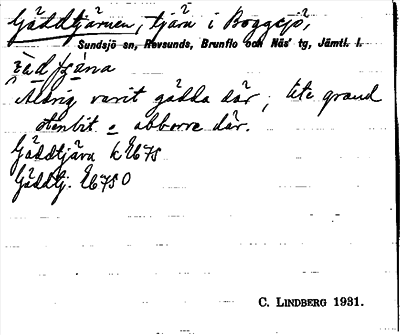 Gäddtjärnen, tjärn i Boggsjö,
Sundsjö sn, Revsunds, Brunflo och Näs' tg, Jämtl. l.
Aldrig varit gädda där, lite grand
stenbit o abborre där.
Gäddtjärn k E675
Gäddtj. E675 O
C. LINDBERG 1931.